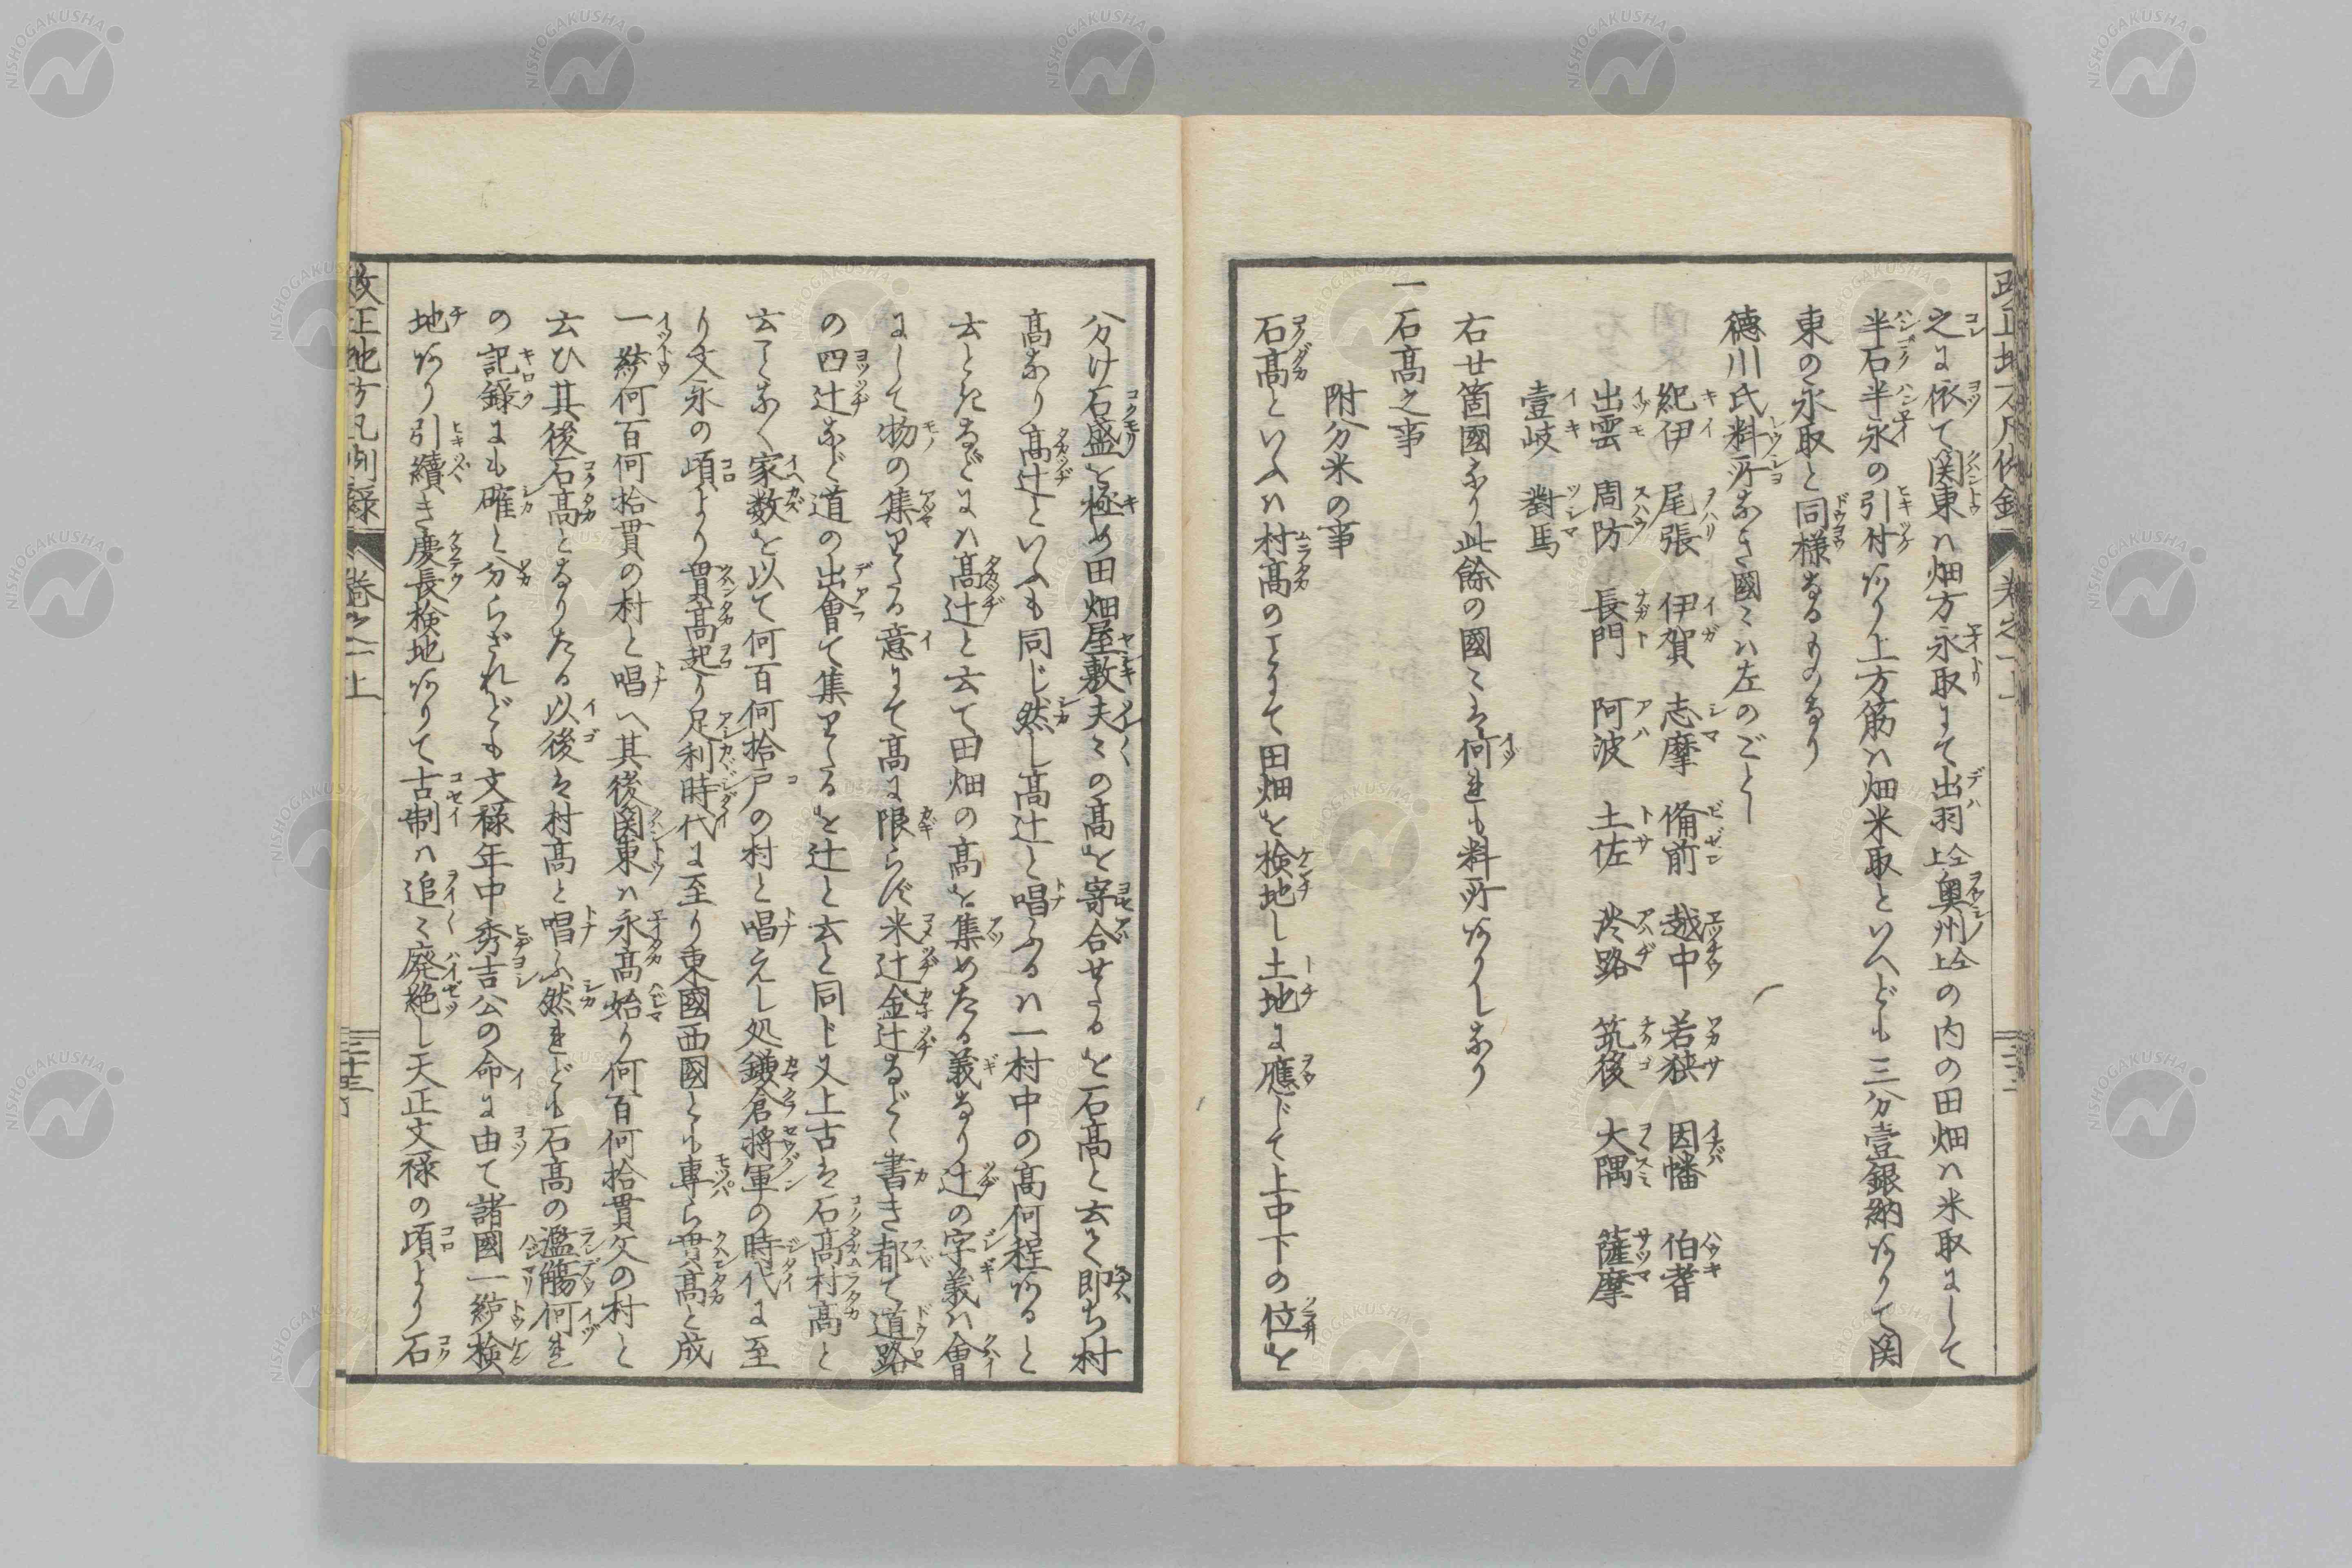 之に依て関東ハ畑方永取にて出羽仝上奥州仝上の内の田畑ハ米取にして
半石半永の引付あり上方筋ハ畑米取といへども三分壹銀納ありて関
東の永取と同様なるものなり
徳川氏料所なき國〻ハ左のごとし
紀伊 尾張 伊賀 志摩 備前 越中 若狭 因幡 伯耆
出雲 周防 長門 阿波 土佐 淡路 筑後 大隅 薩摩
壹岐 對馬
右廿箇國なり此餘の國〻は何れも料所ありしなり
一 石髙之事
附分米の事
石髙といふハ村髙のことにて田畑を検地し土地に應じて上中下の位を
分け石盛を極め田畑屋敷夫〻の髙を寄合せたるを石髙と云て即ち村
髙なり髙辻といふも同じ然し髙辻と唱ふるハ一村中の髙何程あると
云ときなどにハ髙辻と云て田畑の髙を集めたる義なり辻の字義ハ會
にして物の集りたる意にて髙に限らず米辻金辻など書き都て道路
の四辻など道の出會て集りたるを辻と云と同じ又上古は石髙村髙と
云てなく家数を以て何百何拾戸の村と唱えし処鎌倉将軍の時代に至
り文永の頃より貫髙起り足利時代に至り東國西國とも專ら貫髙と成
一統何百何拾貫の村と唱へ其後関東ハ永髙始り何百何拾貫文の村と
云ひ其後石髙となりたる以後は村髙と唱ふ然れども石髙の濫觴何れ
の記録にも確と分らざれども文禄年中秀吉公の命に由て諸國一統検
地あり引續き慶長検地ありて古制ハ追〻廃絶し天正文禄の頃より石
改正地方凡例録 巻之一上 三十三
NISHOGAKUSHA